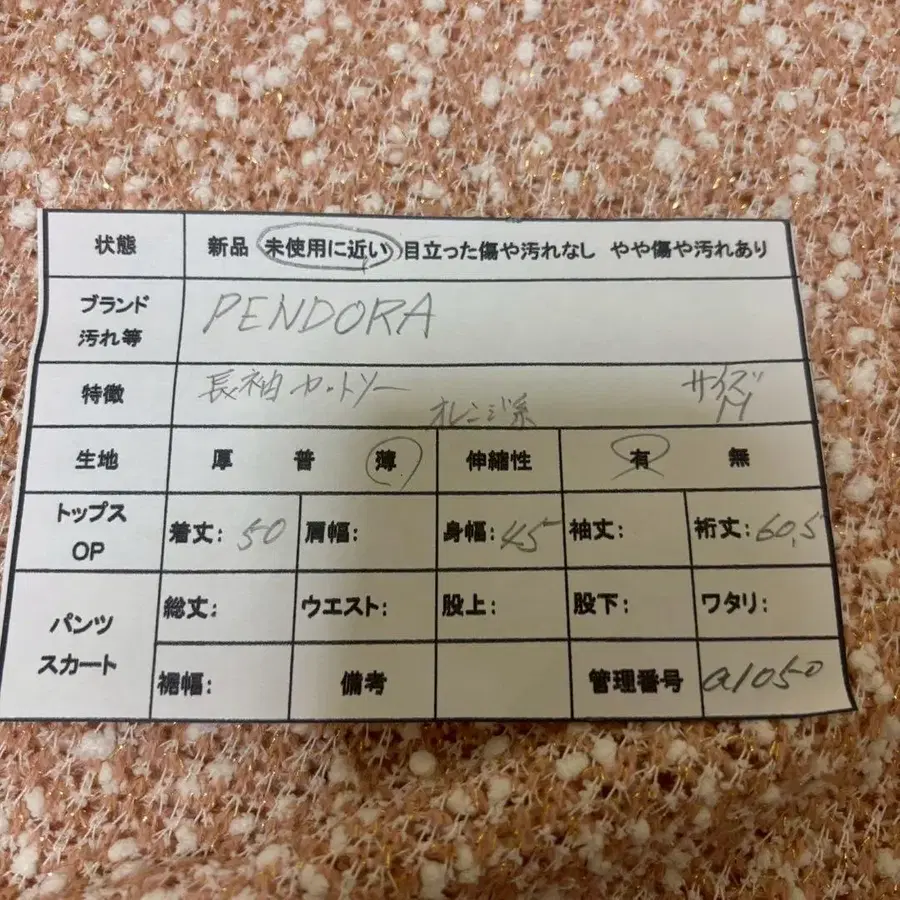 状態 新品 未使用に近い 目立った傷や汚れなし やや傷や汚れあり
ブランド
汚れ等 PENDORA
特徴 長袖カットソー オレンジ系 サイズ M
生地 厚 普 薄 伸縮性 有 無
トップス
OP 着丈: 50 肩幅: 身幅: 45 袖丈: 裄丈: 60,5
パンツ
スカート 総丈: ウエスト: 股上: 股下: ワタリ:
裾幅: 備考 管理番号 a1050